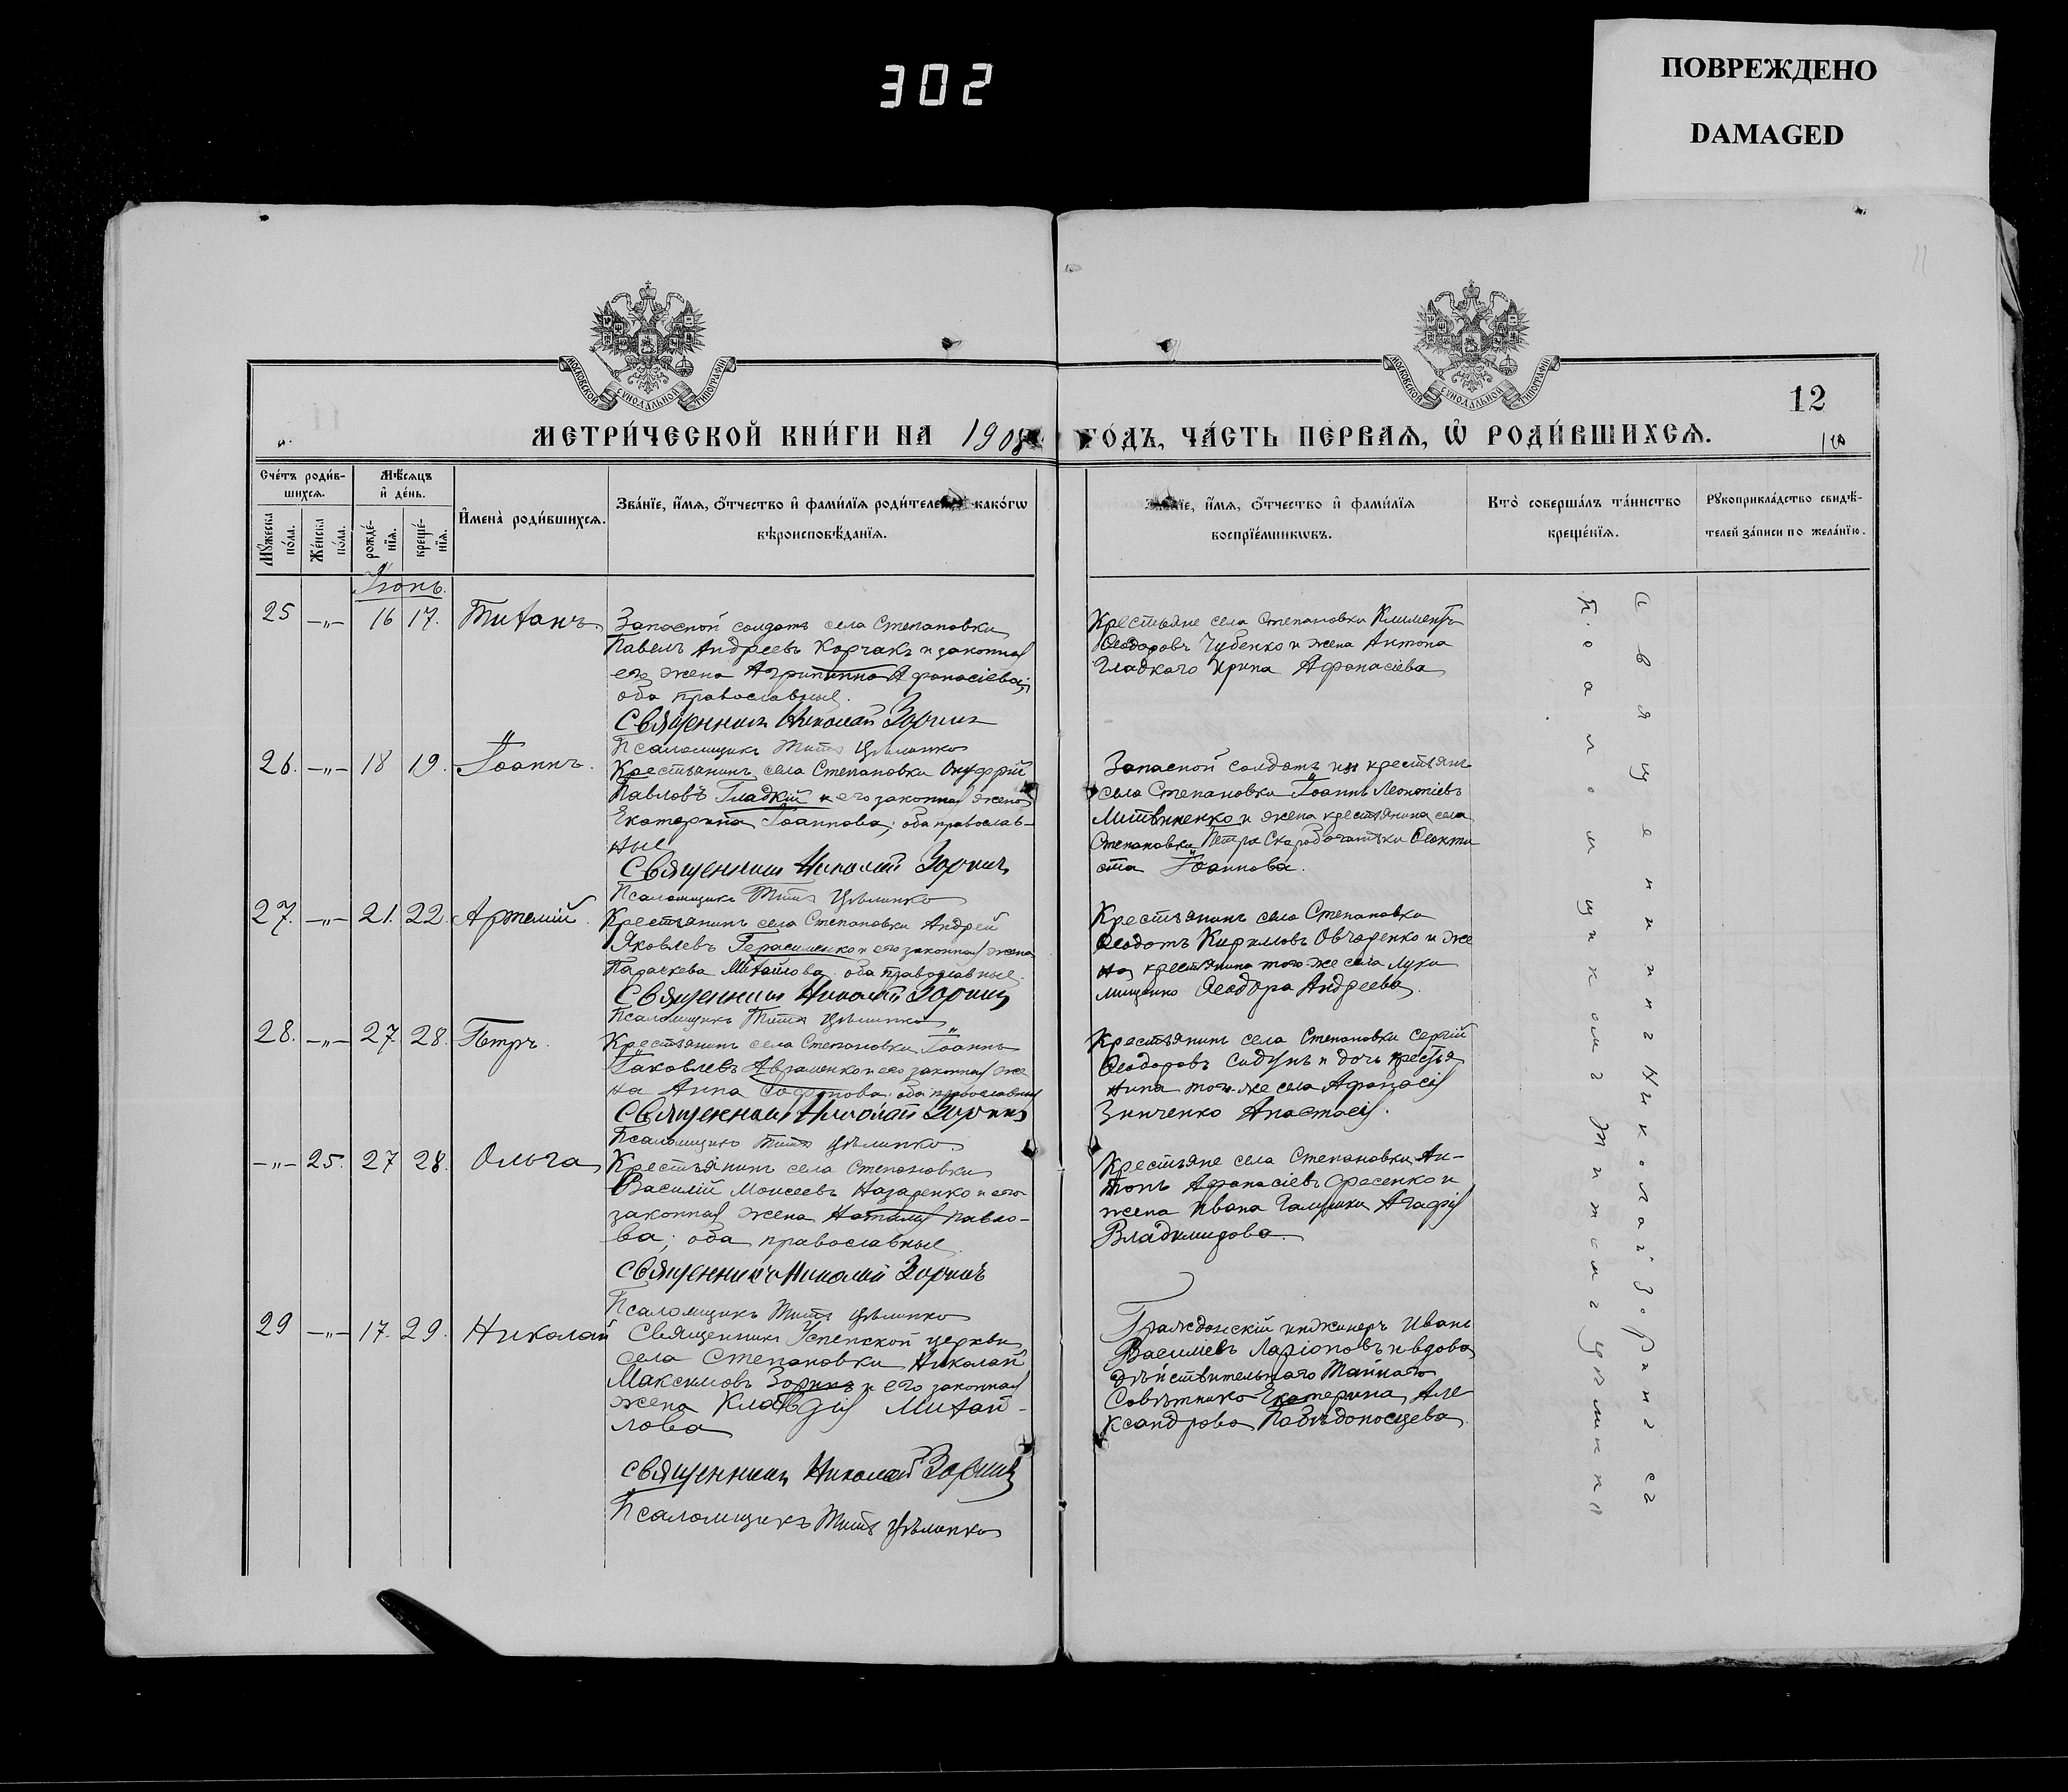 302
ПОВРЕЖДЕНО
DAMAGED
МОСКОВСКОЙ СѴНОДАЛЬНОЙ ТИПОГРАФІИ
МОСКОВСКОЙ СѴНОДАЛЬНОЙ ТИПОГРАФІИ
12
МЕТРИ́ЧЕСКОЙ КНИ́ГИ НА 1908 ГО́ДЪ, ЧА́СТЬ ПЕ́РВАѦ, Ѡ҆ РОДИ́ВШИХСѦ.
Сче́тъ роди́в-
шихсѧ.
Мꙋ́жеска по́ла.
Же́нска по́ла.
Мѣ́сѧцъ
и҆ де́нь.
рожде́-
нїѧ.
креще́-
нїѧ.
И҆мена̀ роди́вшихсѧ.
Зва́нїе, и҆́мѧ, ѻ҆́тчество и҆ фами́лїѧ роди́телей, како́гѡ
вѣроисповѣ́данїѧ.
Зва́нїе, и҆́мѧ, ѻ҆́тчество и҆ фами́лїѧ
воспрїе́мникѡвъ.
Кто̀ соверша́лъ та́инство
креще́нїѧ.
Рꙋкоприкла́дство свидѣ́-
телей за́писи по жела́нїю.
Іюнь.
25 —„— 16 17. Тиханъ.
Запасной солдатъ села Степановки
Павелъ Андреевъ Корчакъ и законная
его жена Агрипина Афанасіева;
оба православные.
Священникъ Николай Зоринъ
Псаломщикъ Титъ Цѣлинко
Крестьяне села Степановки Климентъ
Ѳеодоровъ Чубенко и жена Антона
Гладкаго Ирина Афанасіева
26. —„— 18 19. Іоаннъ.
Крестьянинъ села Степановки Онуфрій
Павловъ Гладкій и его законная жена
Екатерина Іоаннова; оба православ-
ные
Священникъ Николай Зоринъ
Псаломщикъ Титъ Цѣлинко
Запасной солдатъ изъ крестьянъ
села Степановки Іоаннъ Леонтіевъ
Литвиненко и жена крестьянина села
Степановки Петра Скоробогатька Ѳеокти
ста Іоаннова.
27. —„— 21. 22. Артемій.
Крестьянинъ села Степановки Андрей
Яковлевъ Герасименко и его законная жена
Параскева Михайлова; оба православные.
Священникъ Николай Зоринъ
Псаломщикъ Титъ Цѣлинко
Крестьянинъ села Степановки
Ѳеодотъ Кириловъ Овчаренко и же
на крестьянина того-же села Луки
Мищенко Ѳеодора Андреева.
28. —„— 27. 28. Петръ.
Крестьянинъ села Степановки Іоаннъ
Іаковлевъ Авраменко и его законная же
на Анна Софонова; оба православные
Священникъ Николай Зоринъ
Псаломщикъ Титъ Цѣлинко
Крестьянинъ села Степановки Сергій
Ѳеодоровъ Сидунъ и дочь крестья
нина того-же села Афанасія
Зинченко Анастасія.
—„— 25. 27 28. Ольга
Крестьянинъ села Степановки
Василій Моисеевъ Назаренко и его
законная жена Наталія Павло-
ва; оба православные
Священникъ Николай Зоринъ
Псаломщикъ Титъ Цѣлинко
Крестьяне села Степановки Ан-
тонъ Афанасіевъ Фесенко и
жена Ивана Галушки Агафія
Владимирова.
29 —„— 17. 29. Николай
Священникъ Успенской церкви
села Степановки Николай
Максимовъ Зоринъ и его законная
жена Клавдія Михай-
лова
Священникъ Николай Зоринъ
Псаломщикъ Титъ Цѣлинко
Гражданскій инженеръ Иванъ
Василіевъ Ларіоновъ и вдова
дѣйствительнаго Тайнаго
Совѣтника Екатерина Але
ксандрова Побѣдоносцева.
Священникъ Николай Зоринъ съ
псаломщикомъ Титомъ Цѣлинко